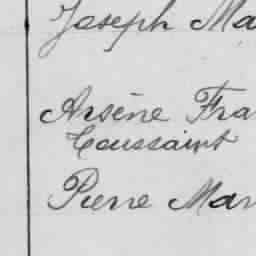 Joseph Ma
Arsène Fra
Toussaint
Pierre Mar